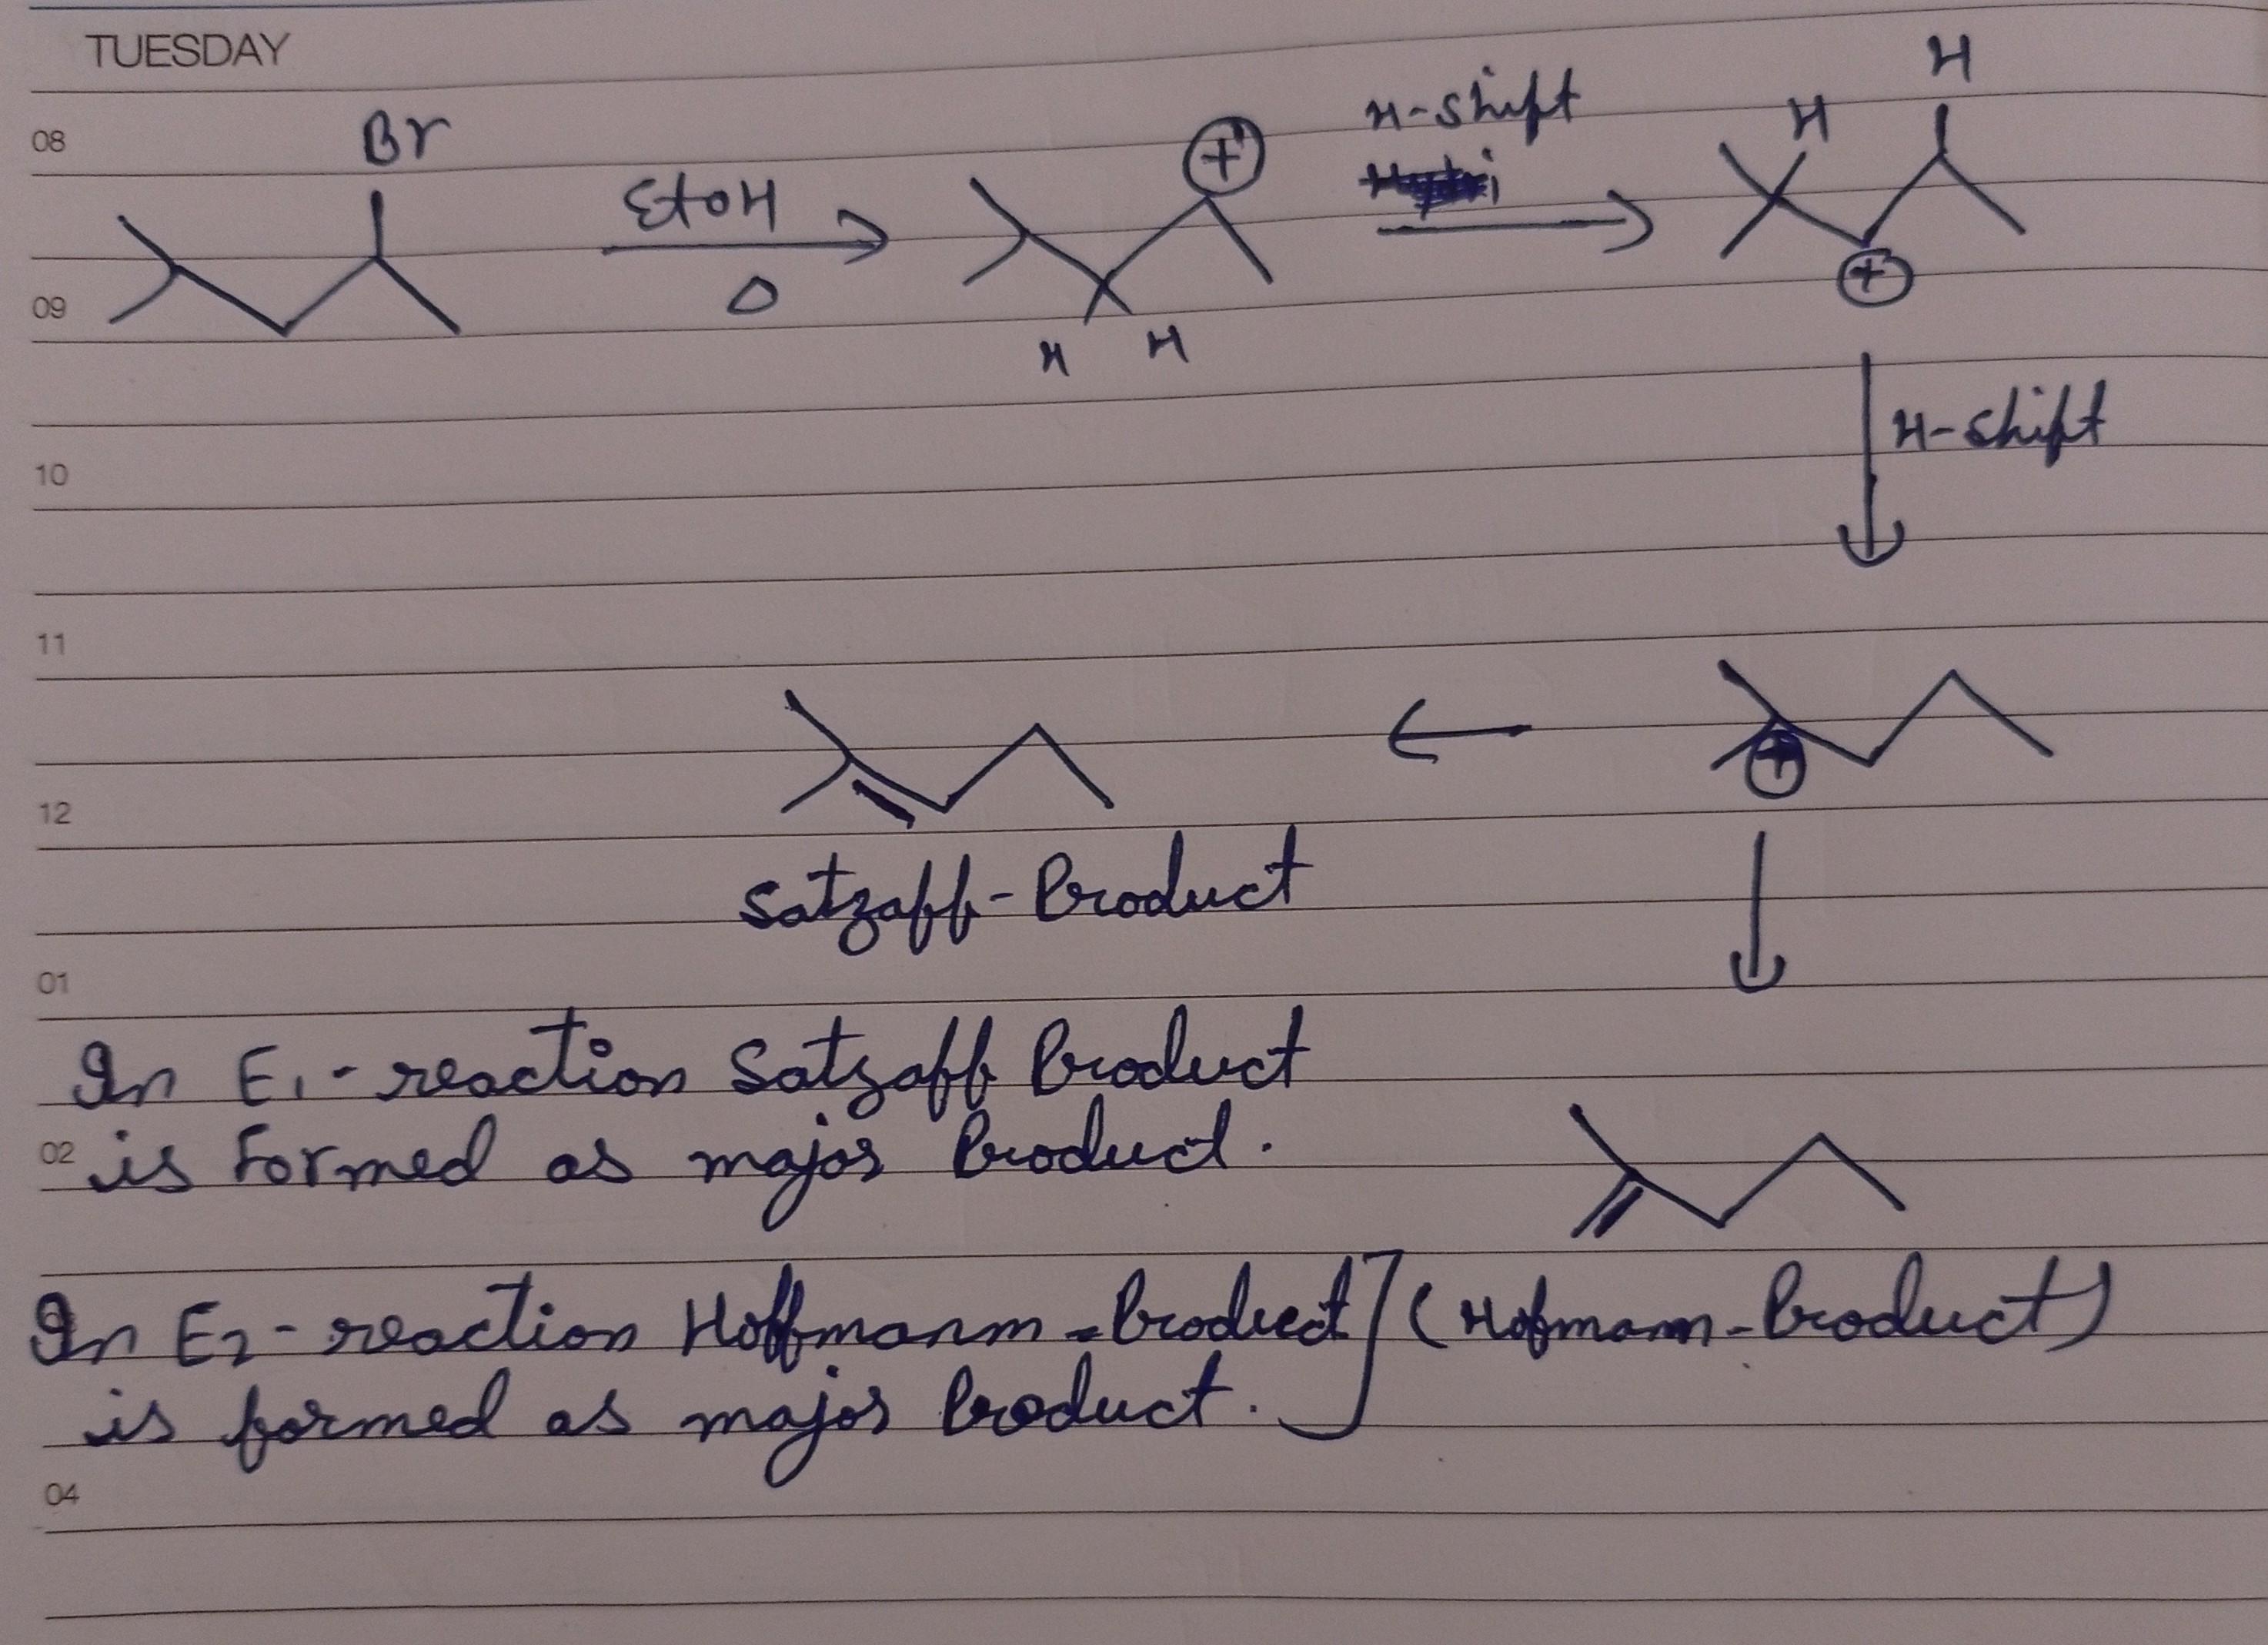 TUESDAY
08
Br
EtOH
Δ
+
H H
H-shift
H
H
+
09
10
H-shift
11
+
12
Satzaff-Product
01
In E1-reaction Satzaff Product
02 is Formed as major Product.
In E2-reaction Hoffmann-Product (Hofmann-Product)
is formed as major Product.
04